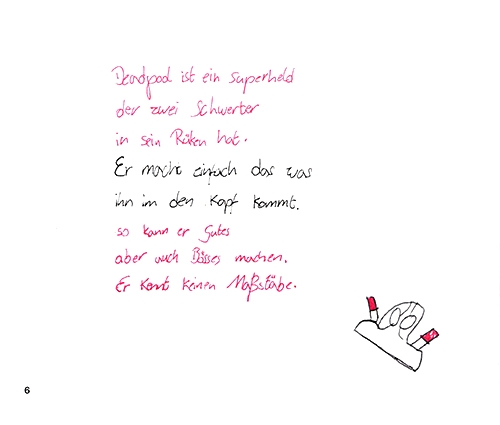 Deadpool ist ein Superheld
der zwei Schwerter
in sein Rüken hat.
Er macht einfach das was
ihn im den Kopf kommt.
so kann er Gutes
aber auch Bösses machen.
Er kent keinen Maßstäbe.
6